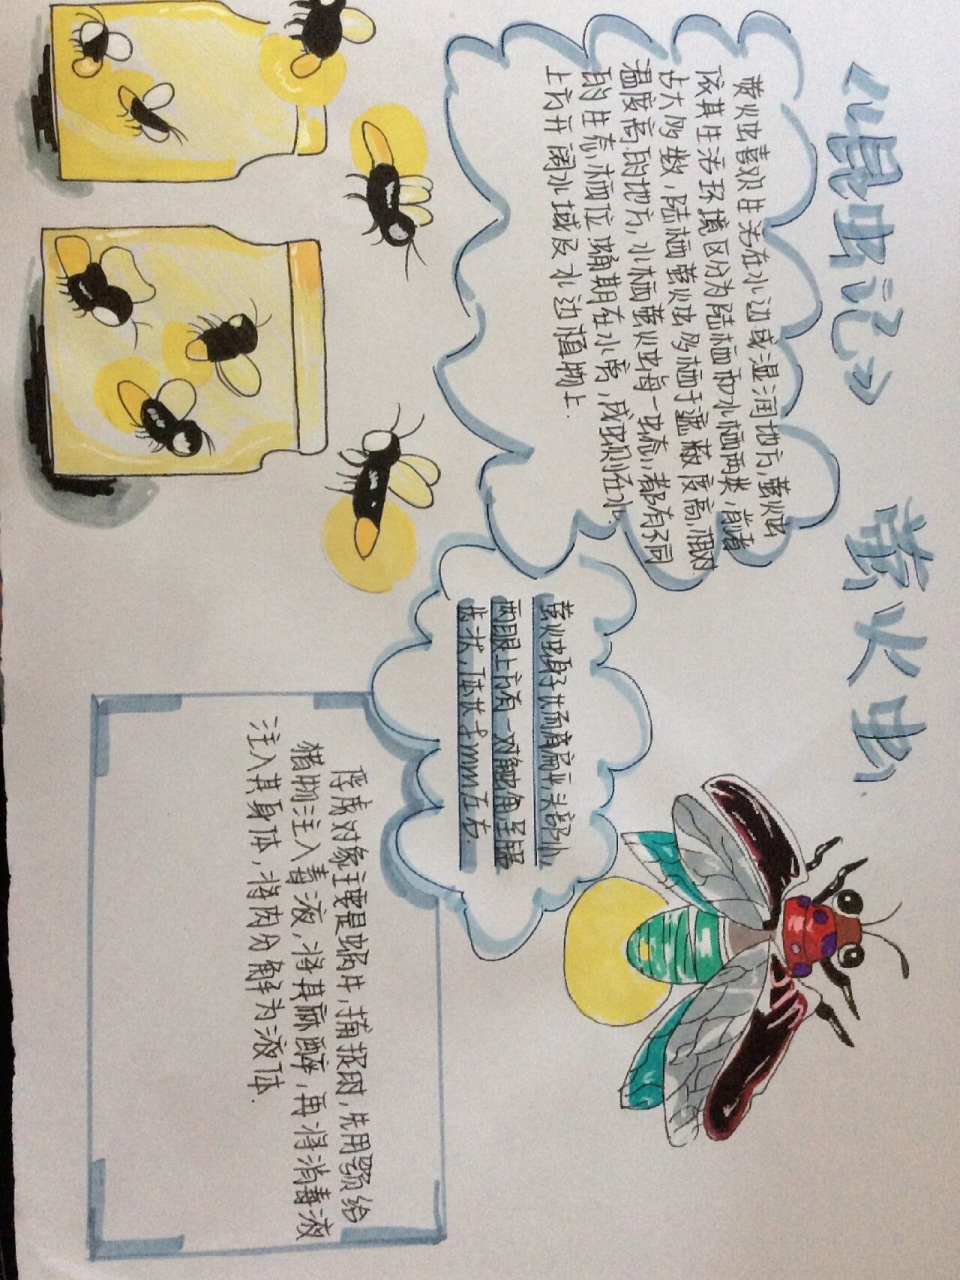 《昆虫记》
萤火虫
萤火虫喜欢生活在水边或湿润地方，萤火虫
依其生活环境区分为陆栖和水栖两类，前者
占大多数，陆栖萤火虫多栖于遮蔽度高，相对
温度高的地方，水栖萤火虫每一虫态，都有不同
的生态栖位，蛹期在水离，成虫则在水
上方开阔水域及水边植物上.
萤火虫身子长而扁平，头部小，
两眼上方有一对触角，呈锯
齿状，体长8mm左右.
俘虏对象主要是蜗牛，捕捉时，先用颚给
猎物注入毒液，将其麻醉，再将消毒液
注入其身体，将肉分解为液体.